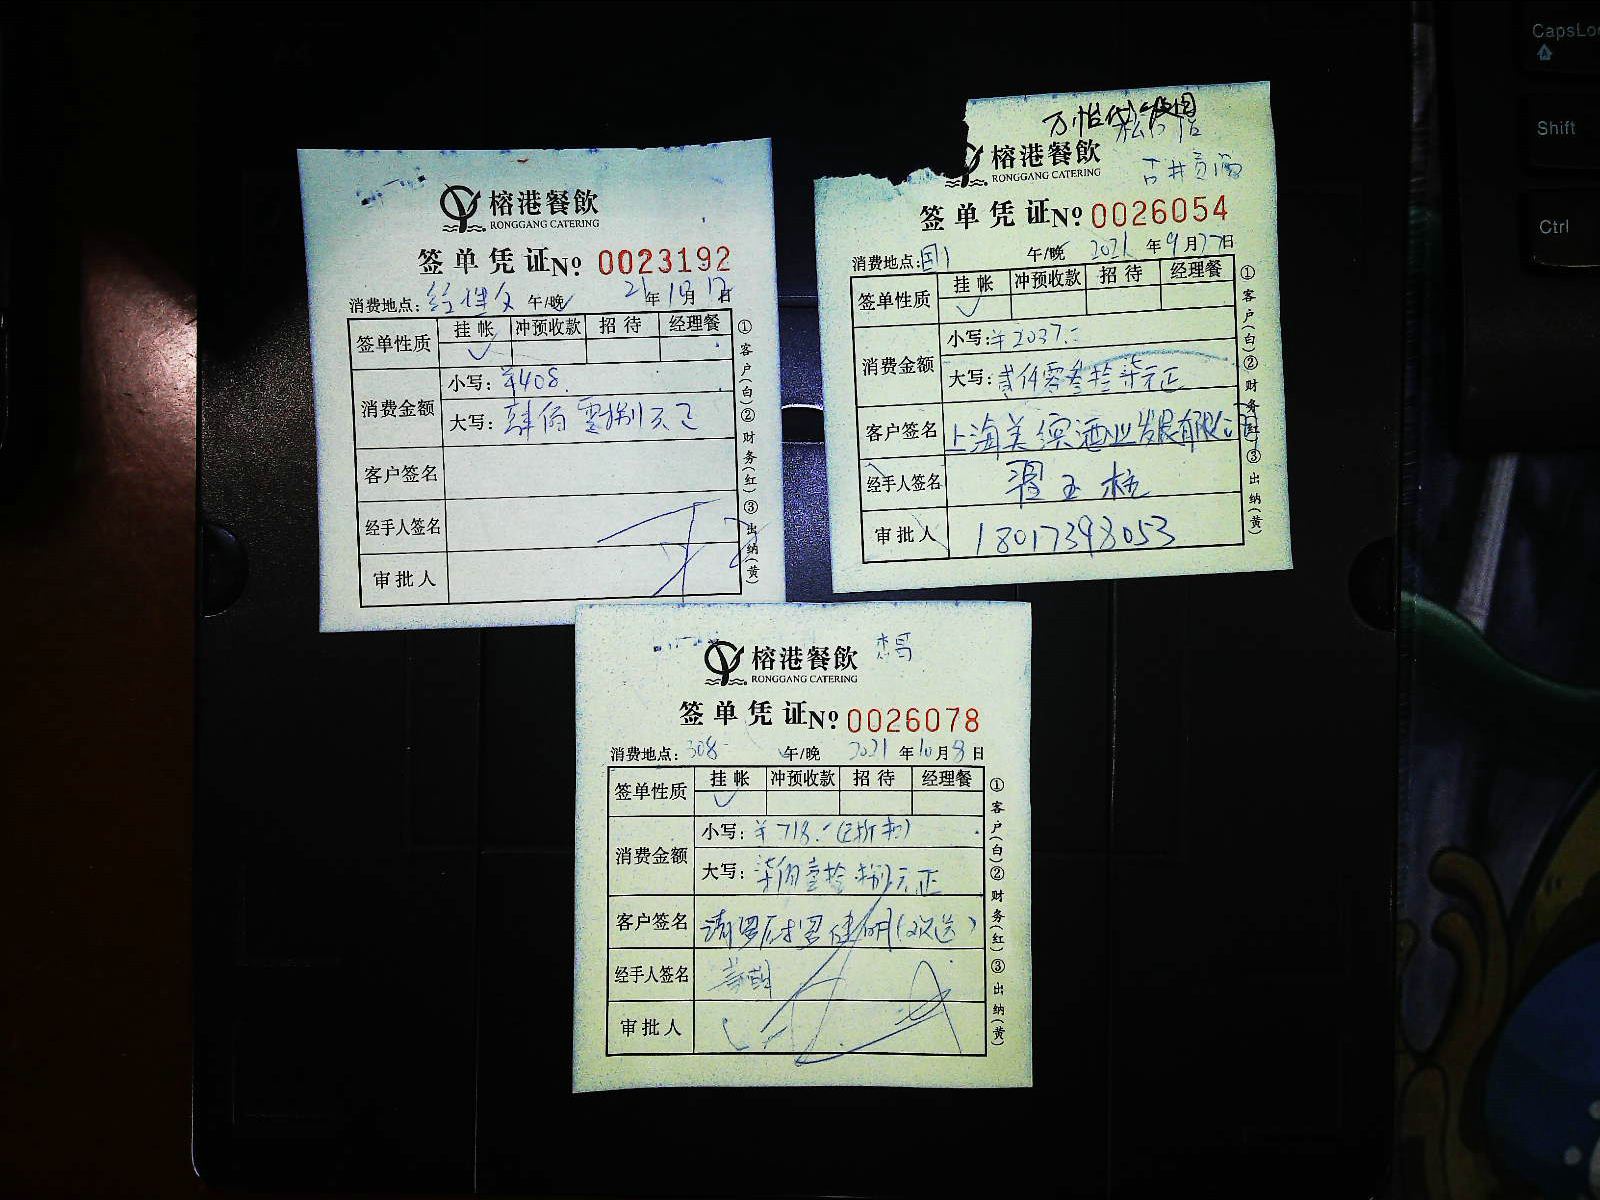 榕港餐飲
RONGGANG CATERING
签单凭证№ 0023192
消费地点: 午/晚 21年10月12日
签单性质 挂帐 冲预收款 招待 经理餐
消费金额 小写: ¥408.
大写: 肆佰零捌元正
客户签名
经手人签名
审批人
①客户(白)②财务(红)③出纳(黄)
榕港餐飲
RONGGANG CATERING
古井贡酒
签单凭证№ 0026054
消费地点: 国1 午/晚 2021年9月27日
签单性质 挂帐 冲预收款 招待 经理餐
消费金额 小写: ¥2037.-
大写: 贰仟零叁拾柒元正
客户签名 上海美滨酒业发展有限公司
经手人签名 翟玉
审批人 18017398053
①客户(白)②财务(红)③出纳(黄)
榕港餐飲
RONGGANG CATERING
签单凭证№ 0026078
消费地点: 308 午/晚 2021年10月8日
签单性质 挂帐 冲预收款 招待 经理餐
消费金额 小写: ¥718.-(已折扣)
大写: 柒佰壹拾捌元正
客户签名
经手人签名
审批人
①客户(白)②财务(红)③出纳(黄)
CapsLo
Shift
Ctrl